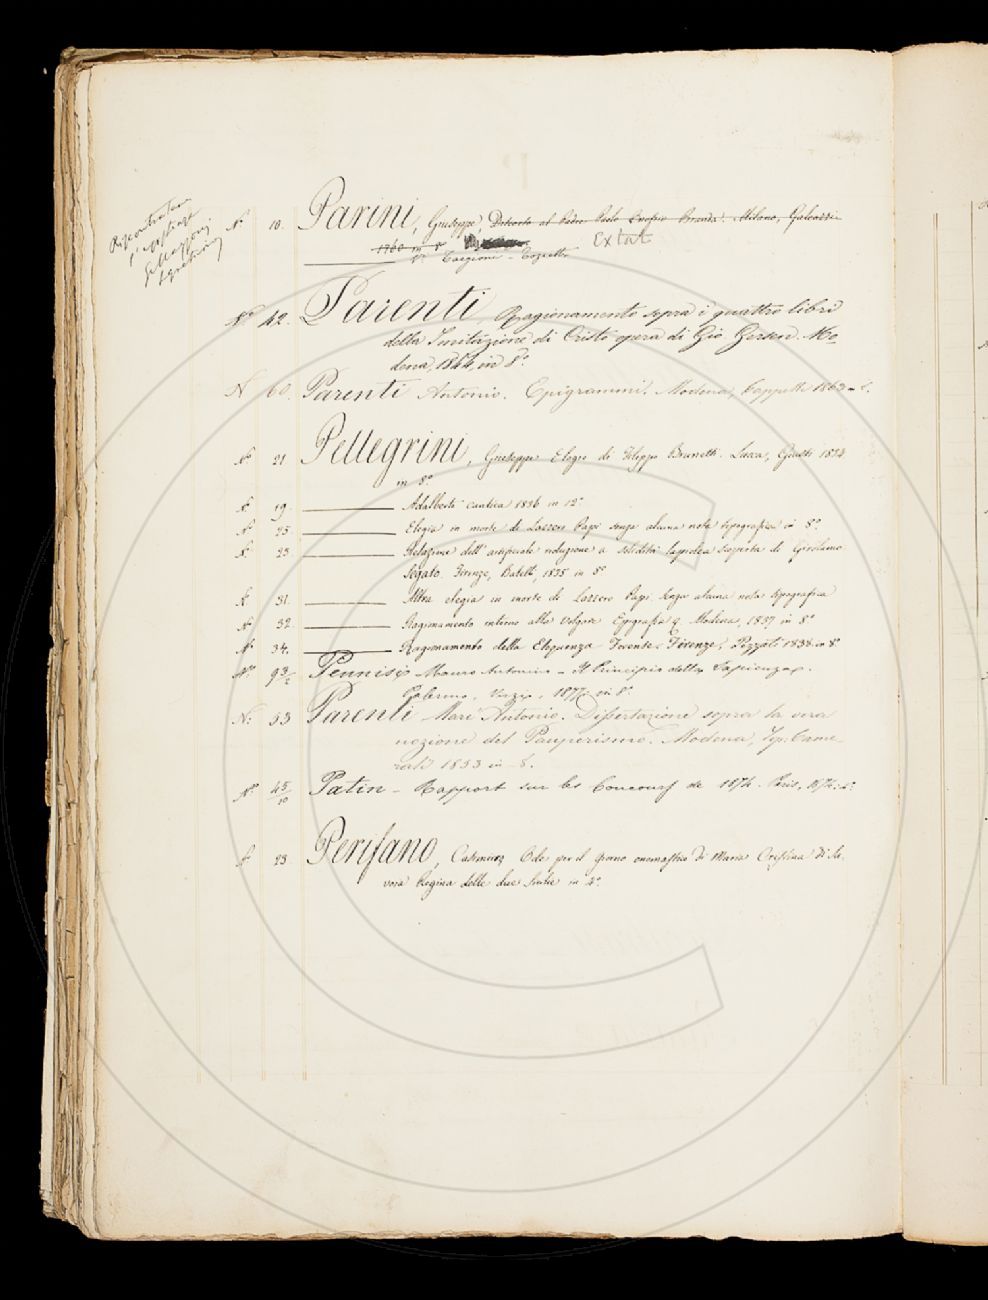 Riscontrata
N.º 10. Parini, Giuseppe, Discorso al Padre Paolo Onofrio Branda. Milano, Galeazzi
1760 in 8º
Extat
Vº Targioni - Tozzetti
Nº 42. Parenti Ragionamento sopra i quattro libri
della Imitazione di Cristo opera di Gio. Gersen. Mo-
dena, 1844, in 8º
N 60. Parenti Antonio. Epigrammi. Modena, Cappelli 1863 - 8.
Nº 21 Pellegrini, Giuseppe Elogio di Filippo Brunetti. Lucca, Giusti 1824
in 8º
Nº 19 Adalberto cantica 1836 in 12º
Nº 25 Elegia in morte di Lazzero Papi senza alcuna nota tipografica in 8º
Nº 25 Relazione dell' artificiale riduzione a solidità lapidea scoperta da Girolamo
Segato. Firenze, Batelli, 1835 in 8º
Nº 31. Altra elegia in morte di Lazzero Papi. Senza alcuna nota tipografica
Nº 32 Ragionamento intorno alla volgare Epigrafia. Modena, 1837 in 8º
Nº 34. Ragionamento della Eloquenza Forense. Firenze, Pezzati 1838 in 8º
Nº 93/2 Pennisi Mauro Antonino - Il Principio della Sapienza.
Palermo, Virzì, 1877, in 8º
N: 53 Parenti Marc' Antonio. Dissertazione sopra la vera
nozione del Pauperismo. Modena, Tip: Came-
rali 1853 in - 8.
Nº 45/10 Patin - Rapport sur les Concours de 1874. Paris, 1874: 4º
Nº 23 Perifano, Casimiro, Ode per il giorno onomastico di Maria Cristina di Sa-
voia Regina delle due Sicilie in 4º